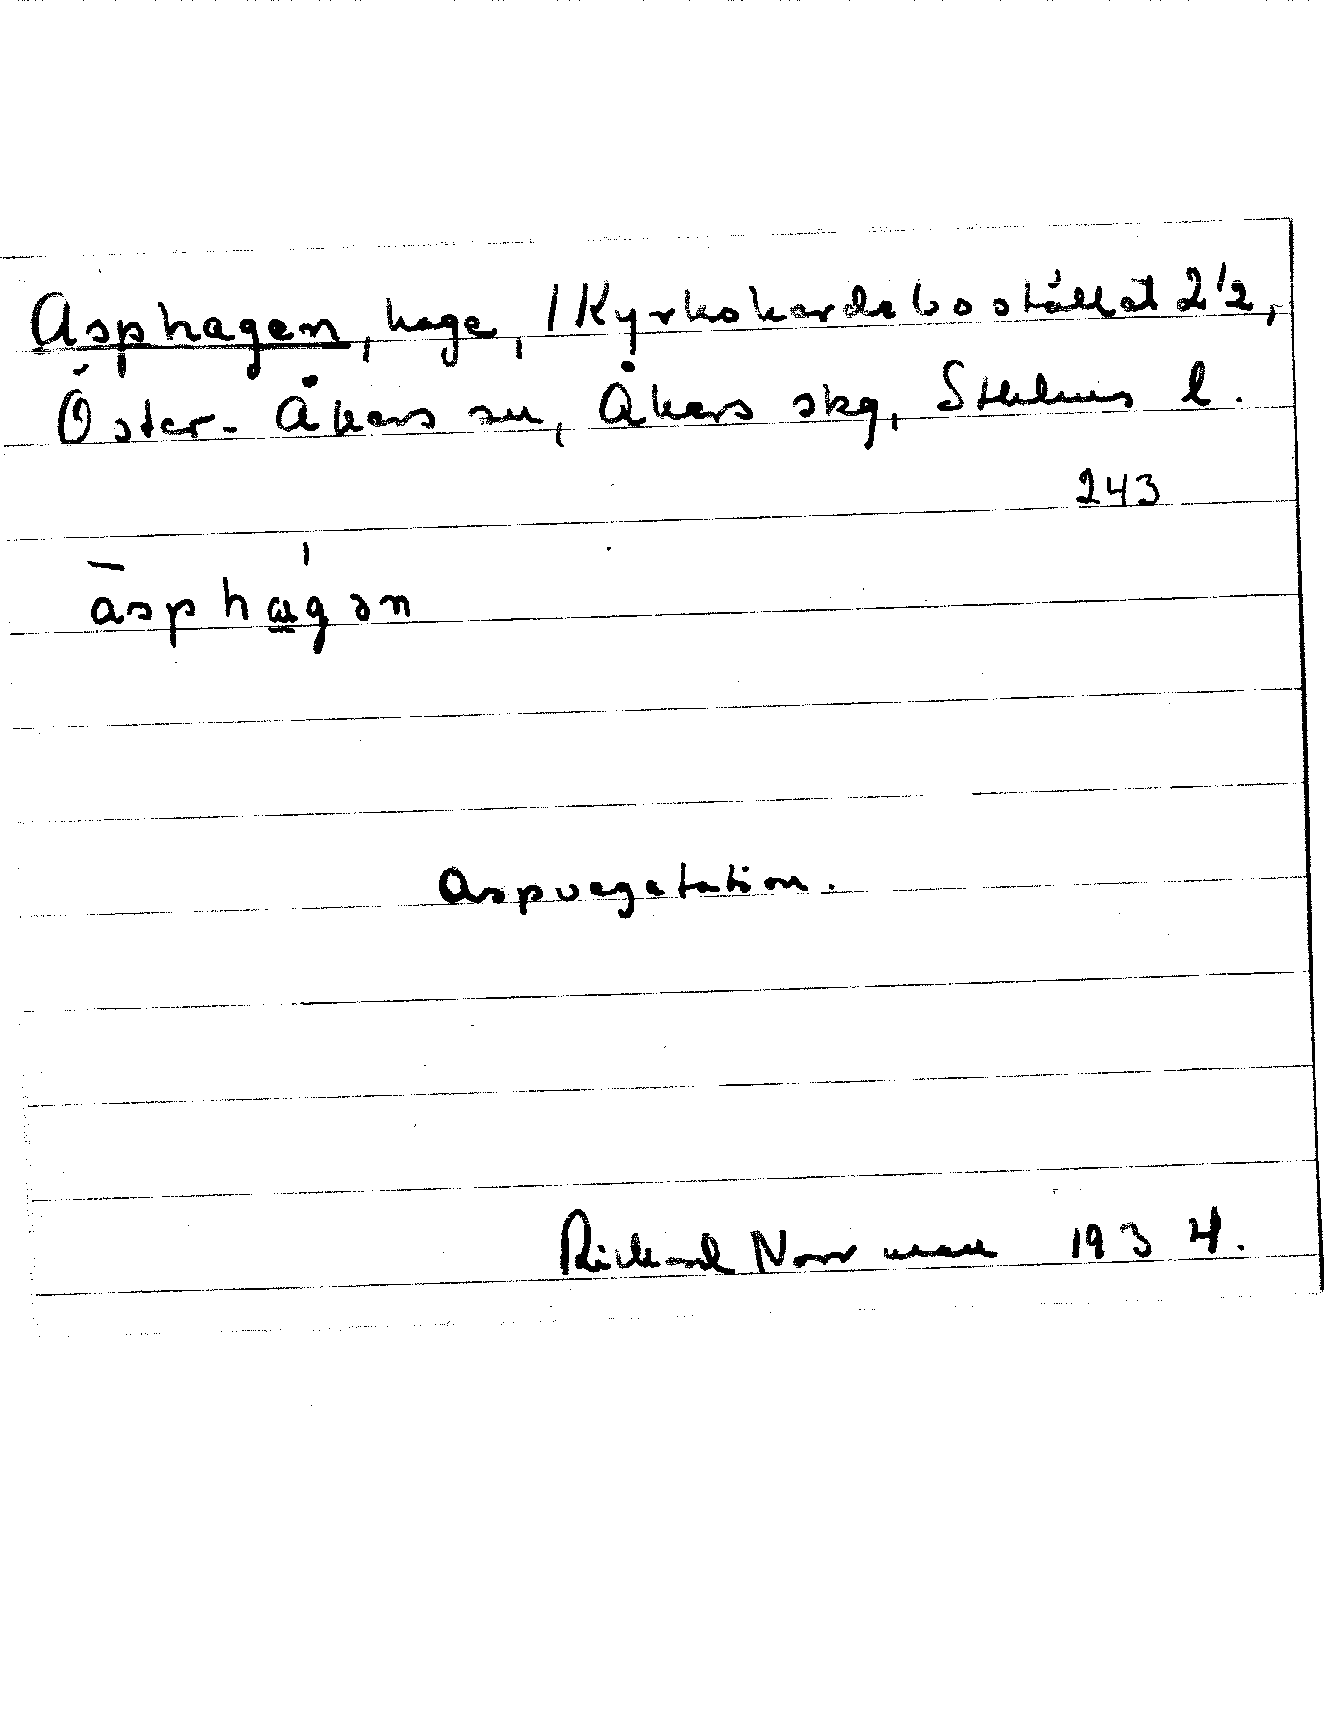 Asphagen, hage, 1 Kyrkoherdebostället 2 1/2,
Öster-Åkers sn, Åkers skg, Sthlms l.
243
āsphágən
Aspvegetation.
Rickard Norrman 1934.